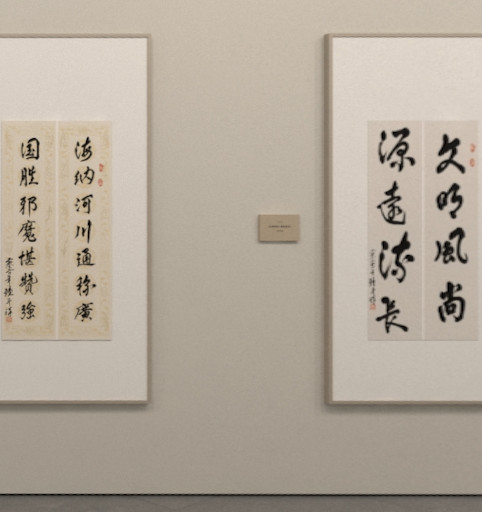 海纳河川通称广
国胜邪魔堪赞强
文明風尚
源遠流長